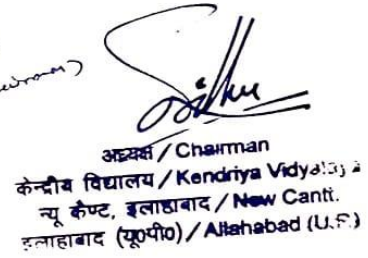 Sidhu
अध्यक्ष / Chairman
केन्द्रीय विद्यालय / Kendriya Vidyalaya
न्यू कैण्ट, इलाहाबाद / New Cantt.
इलाहाबाद (यू०पी०) / Allahabad (U.P.)